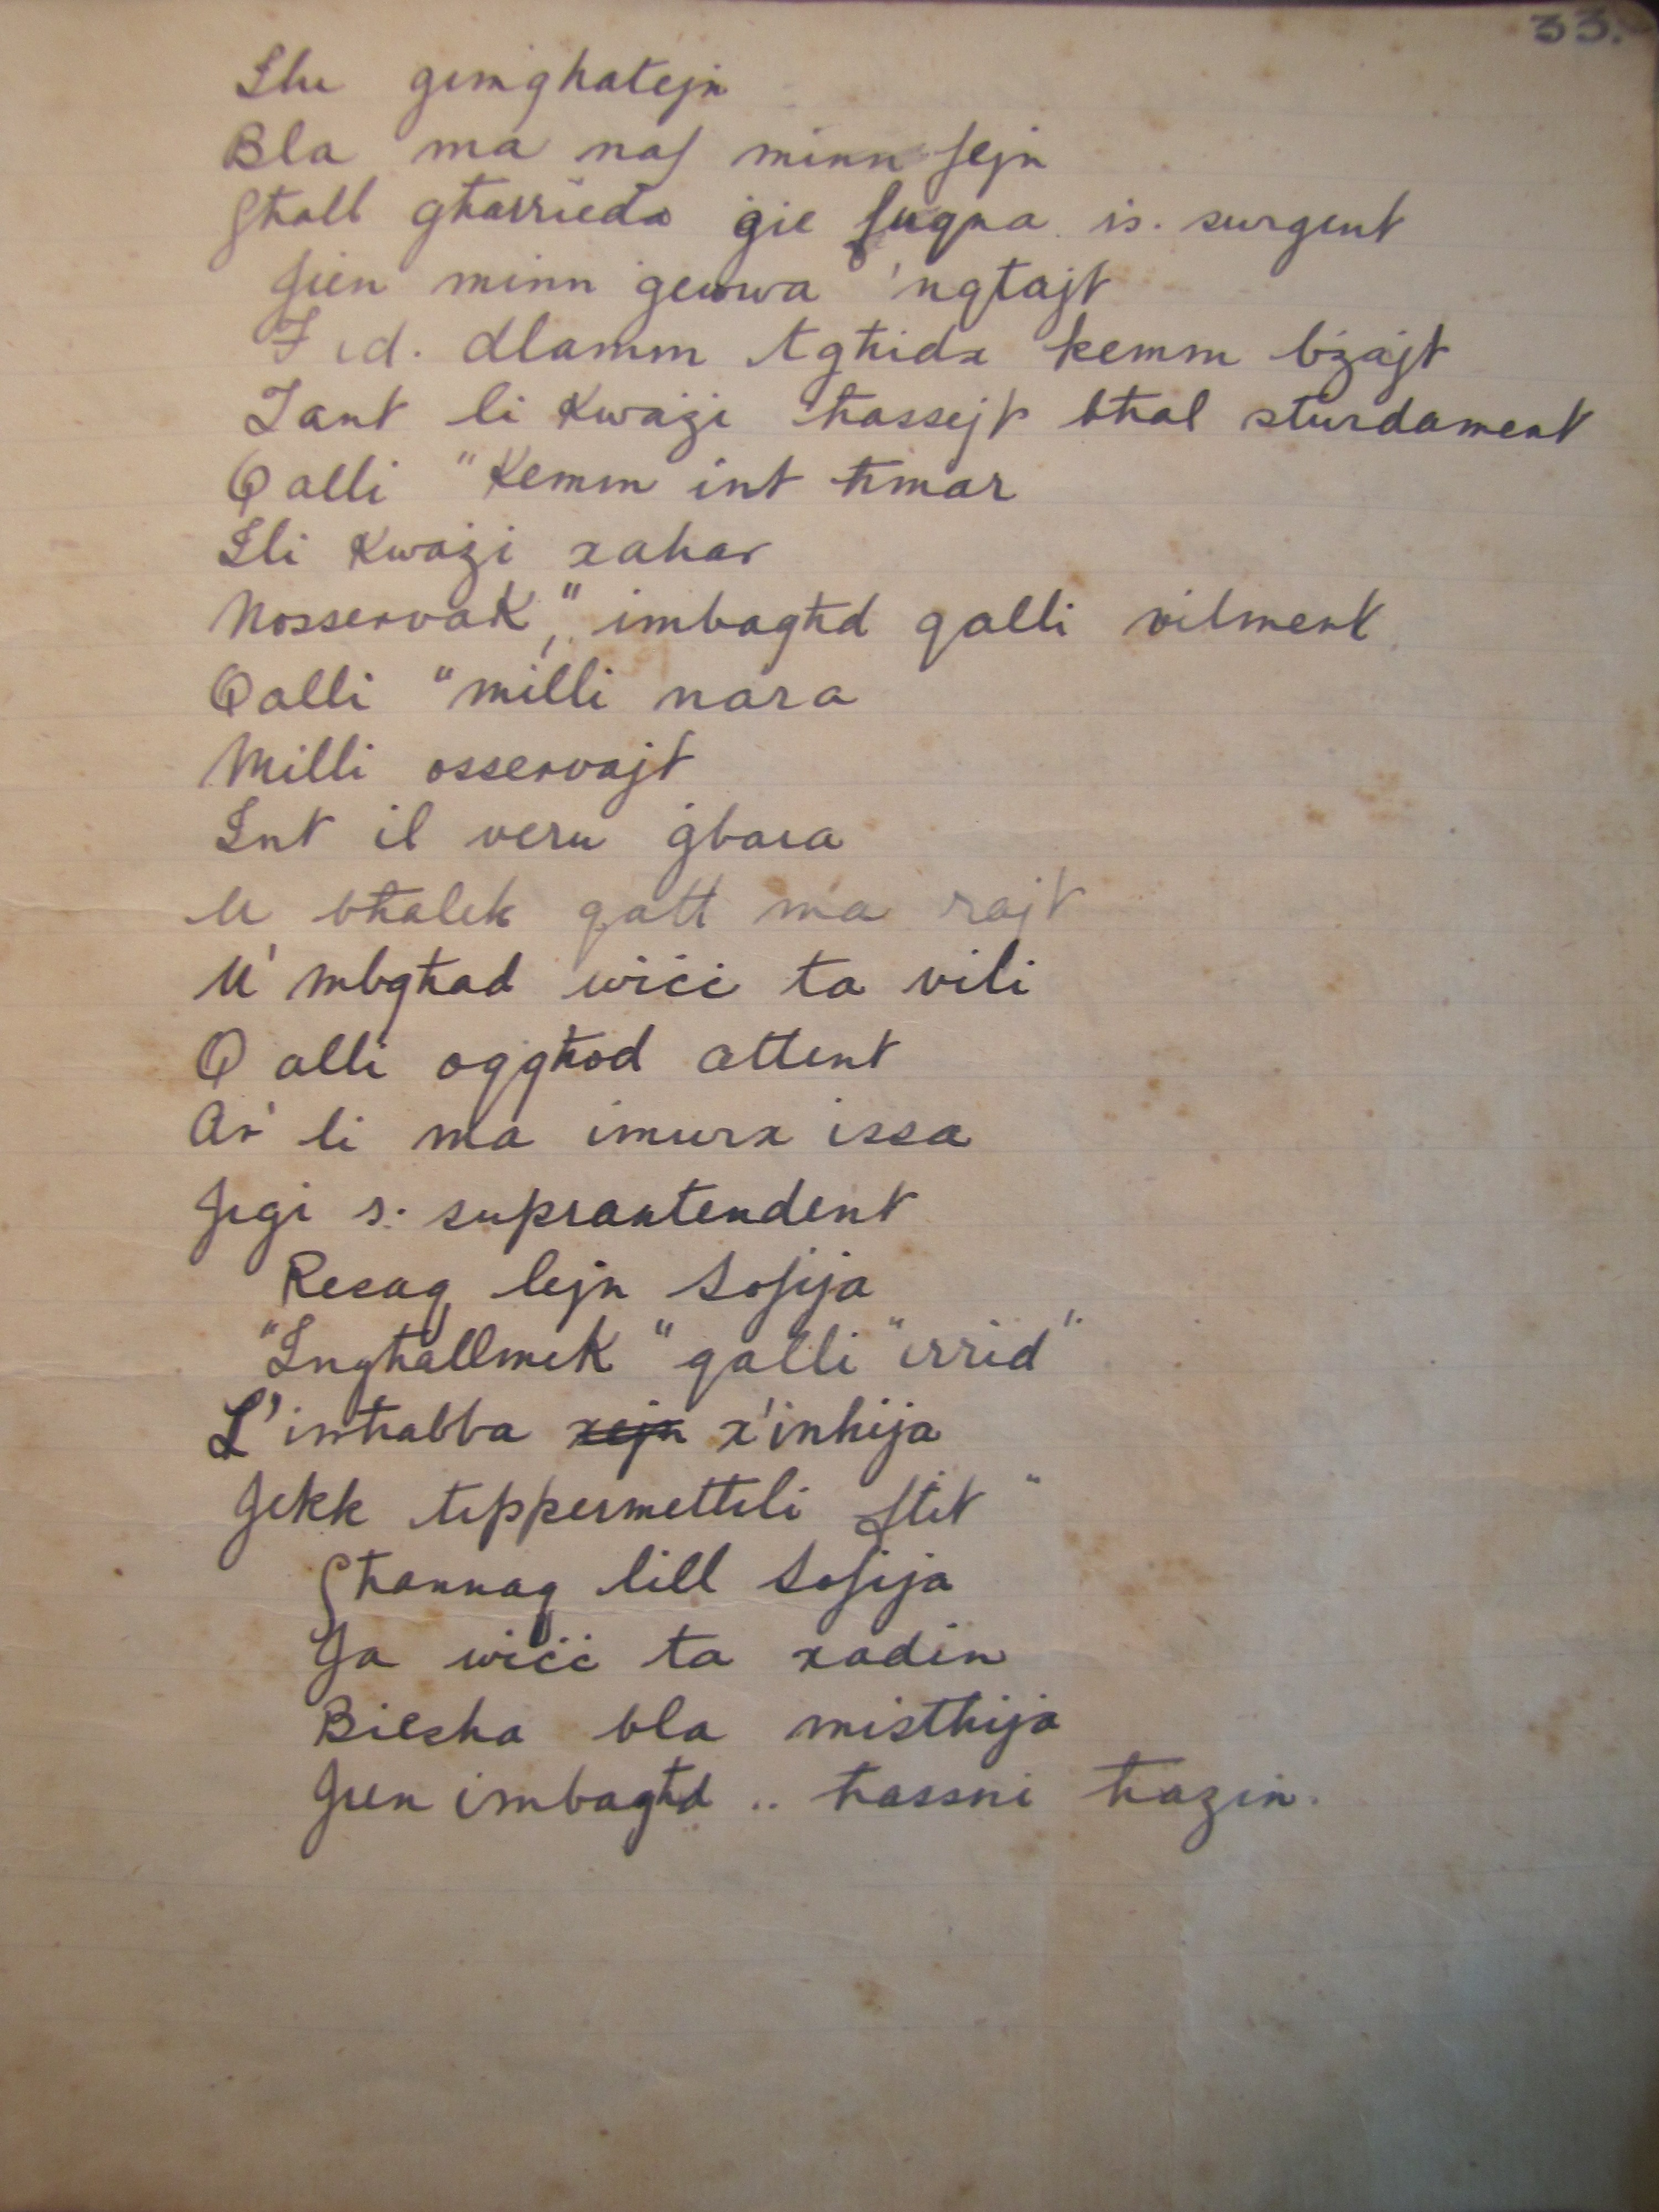 33.
Illu ġimgħatejn
Bla ma naf minn fejn
Għall għarrieda ġie fuqna is. surġent
Jien minn ġewwa 'nqtajt
F id. dlamm tgħidx kemm bżajt
Tant li kważi ħassejt bħal sturdament
Qalli "Kemm int ħmar
Ili kważi xahar
Nosservak", imbagħd qalli vilment
Qalli "milli nara
Milli osservajt
Int il veru ġbara
U bħalek qatt ma rajt
U' mbgħad wiċċ ta vili
Qalli oqgħod attent
Ar' li ma imurx issa
Jiġi s. suprantendent
Resaq lejn Sofija
"Ingħallmek" qalli "irrid".
L' inħabba x'inhija
Jekk tippermettili ftit"
Għannaq lill Sofija
Ja wiċċ ta xadin
Biesha bla mistħija
Jien imbagħd .. ħassni ħażin.